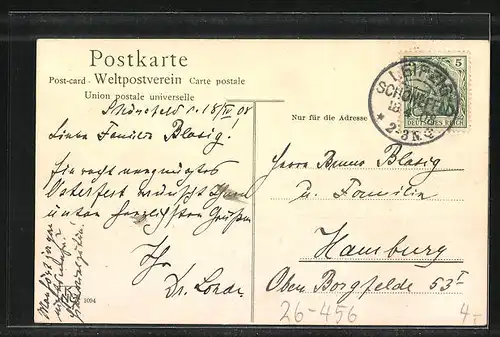 Postkarte
Post-card - Weltpostverein Carte postale
Union postale universelle
Schönefeld, 18/IV 08
Liebe Familie Blasig.
Ein recht vergnügtes
Osterfest wünscht Ihnen
unter herzlichsten Grüßen
Ihr
Dr.
1094
Nur für die Adresse
LEIPZIG
SCHÖNEFELD
18
* 2-3 N.
5
DEUTSCHES REICH
Herrn Bruno Blasig
u. Familie
Hamburg
Oben Borgfelde 53 I
26-456
4,-